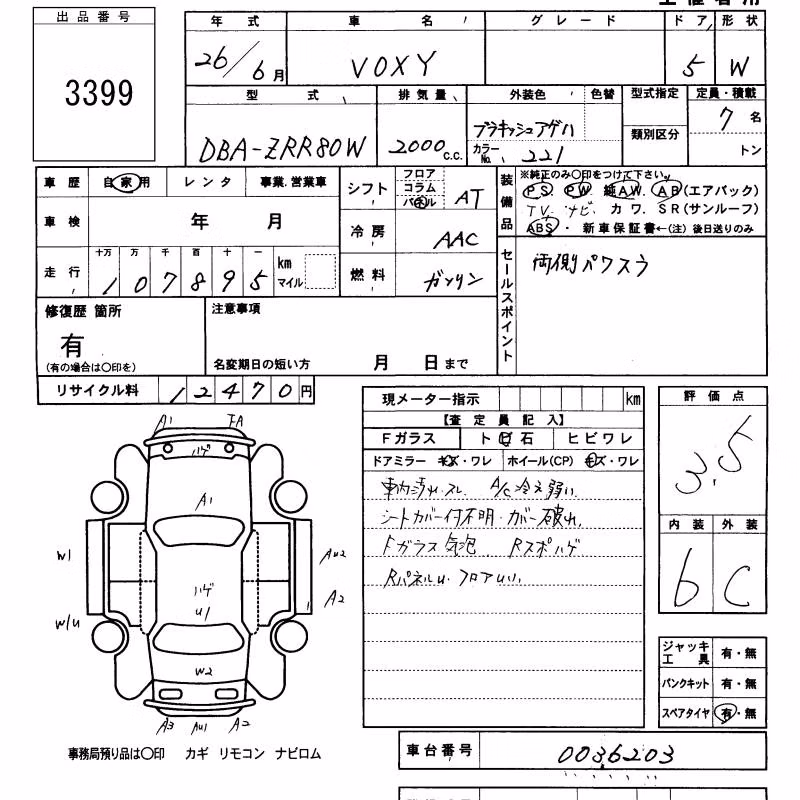 出品番号
3399
年式 車名 グレード ドア 形状
26/6月 VOXY 5 W
型式 排気量 外装色 色替 型式指定 定員・積載
類別区分
DBA-ZRR80W 2000c.c. ブラキッシュアゲハ 7名
カラーNo. 221 トン
車歴 自家用 レンタ 事業.営業車
車検 年 月
走行 十万 万 千 百 十 一
107895 km マイル
シフト フロア コラム パネル AT
冷房 AAC
燃料 ガソリン
装備品
※純正のみ〇印をつけて下さい。
PS PW 純AW. AB(エアバック)
TV. ナビ. カワ. SR(サンルーフ)
ABS・新車保証書←(注)後日送りのみ
セールスポイント
両側パワスラ
修復歴 箇所
有
(有の場合は〇印を)
注意事項
名変期日の短い方 月 日まで
リサイクル料 12470円
現メーター指示 km
【査定員記入】
Fガラス ト ビ 石 ヒビワレ
ドアミラー キズ・ワレ ホイール(CP) キズ・ワレ
車内汚れ.スレ A/C冷え弱い
シートカバー付不明.カバー破れ
Fガラス気泡 Rスポハゲ
RパネルU. フロアUい.
評価点
3.5
内装 外装
6 C
ジャッキ工具 有・無
パンクキット 有・無
スペアタイヤ 有・無
A1 FA
ハゲ
A1
W1 AU2
A2
ハゲ
U1
W/U
W2
A3 AU1 A2
事務局預り品は〇印 カギ リモコン ナビロム
車台番号 0036203